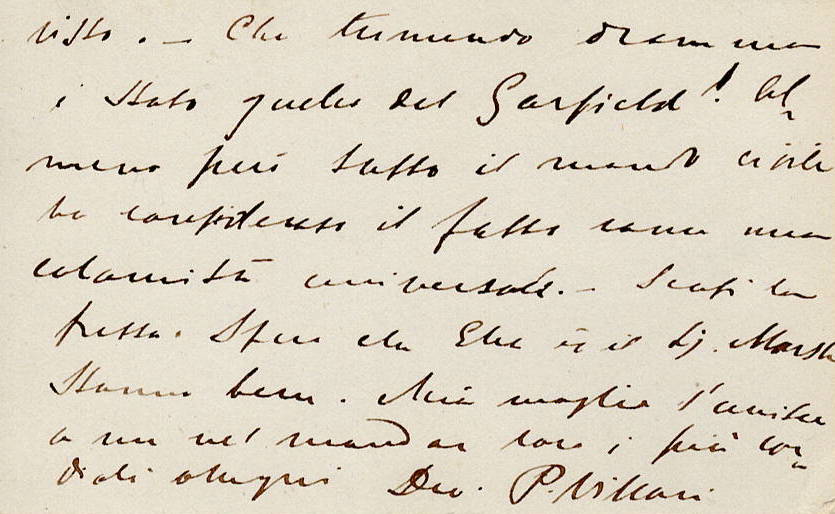 visto. — Che tremendo dramma
è stato quello del Garfield! Al-
meno però tutto il mondo civile
ha considerato il fatto come una
calamità universale. — Scusi la
fretta. Spero che Ella e il Sig. Marsh
stanno bene. Mia moglie s'unisce
a me nel mandar loro i più cor-
diali ossequi Dev. P. Villari